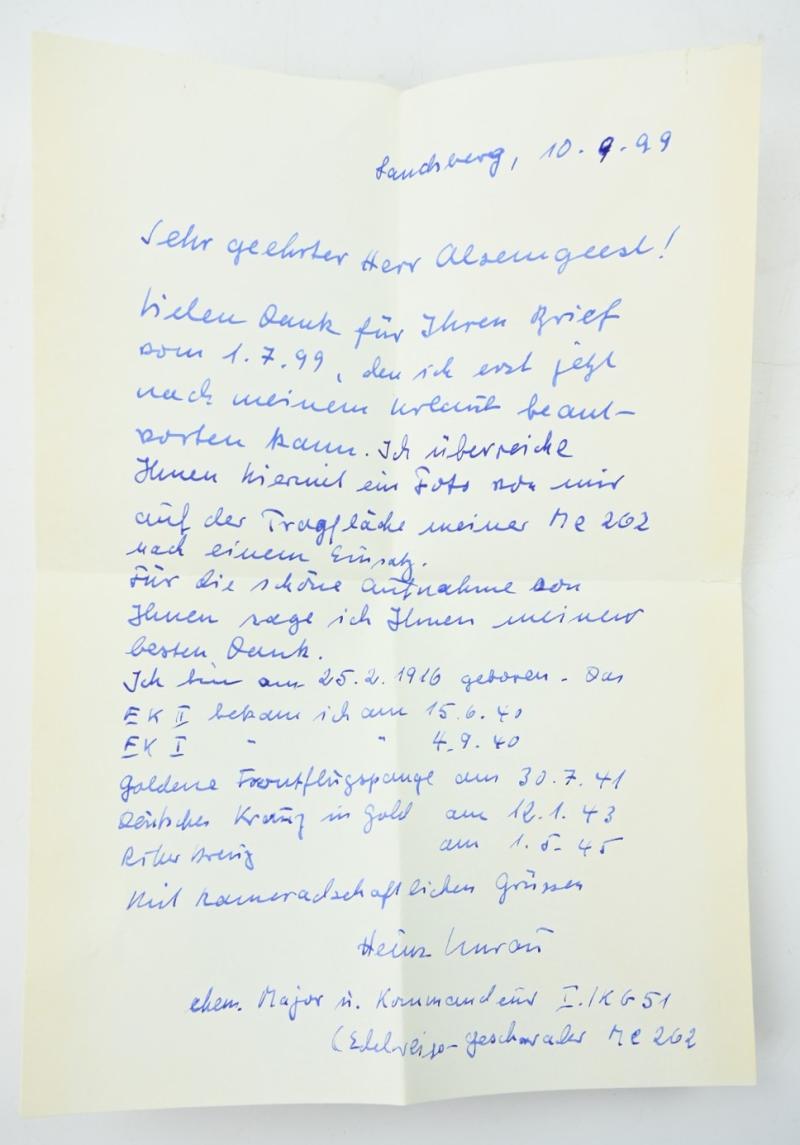 Landsberg, 10.9.99
Sehr geehrter Herr Alsemgeest!
Vielen Dank für Ihren Brief
vom 1.7.99, den ich erst jetzt
nach meinem Urlaub beant-
worten kann. Ich überreiche
Ihnen hiermit ein Foto von mir
auf der Tragfläche meiner Me 262
nach einem Einsatz.
Für die schöne Aufnahme von
Ihnen sage ich Ihnen meinen
besten Dank.
Ich bin am 25.2.1916 geboren. Das
EK II bekam ich am 15.6.40
EK I " " 4.9.40
Goldene Frontflugspange am 30.7.41
Deutsches Kreuz in Gold am 12.1.43
Ritterkreuz am 1.5.45
Mit kameradschaftlichen Grüssen
Heinz Unrau
ehem. Major u. Kommandeur I./KG 51
(Edelweiss-geschwader Me 262